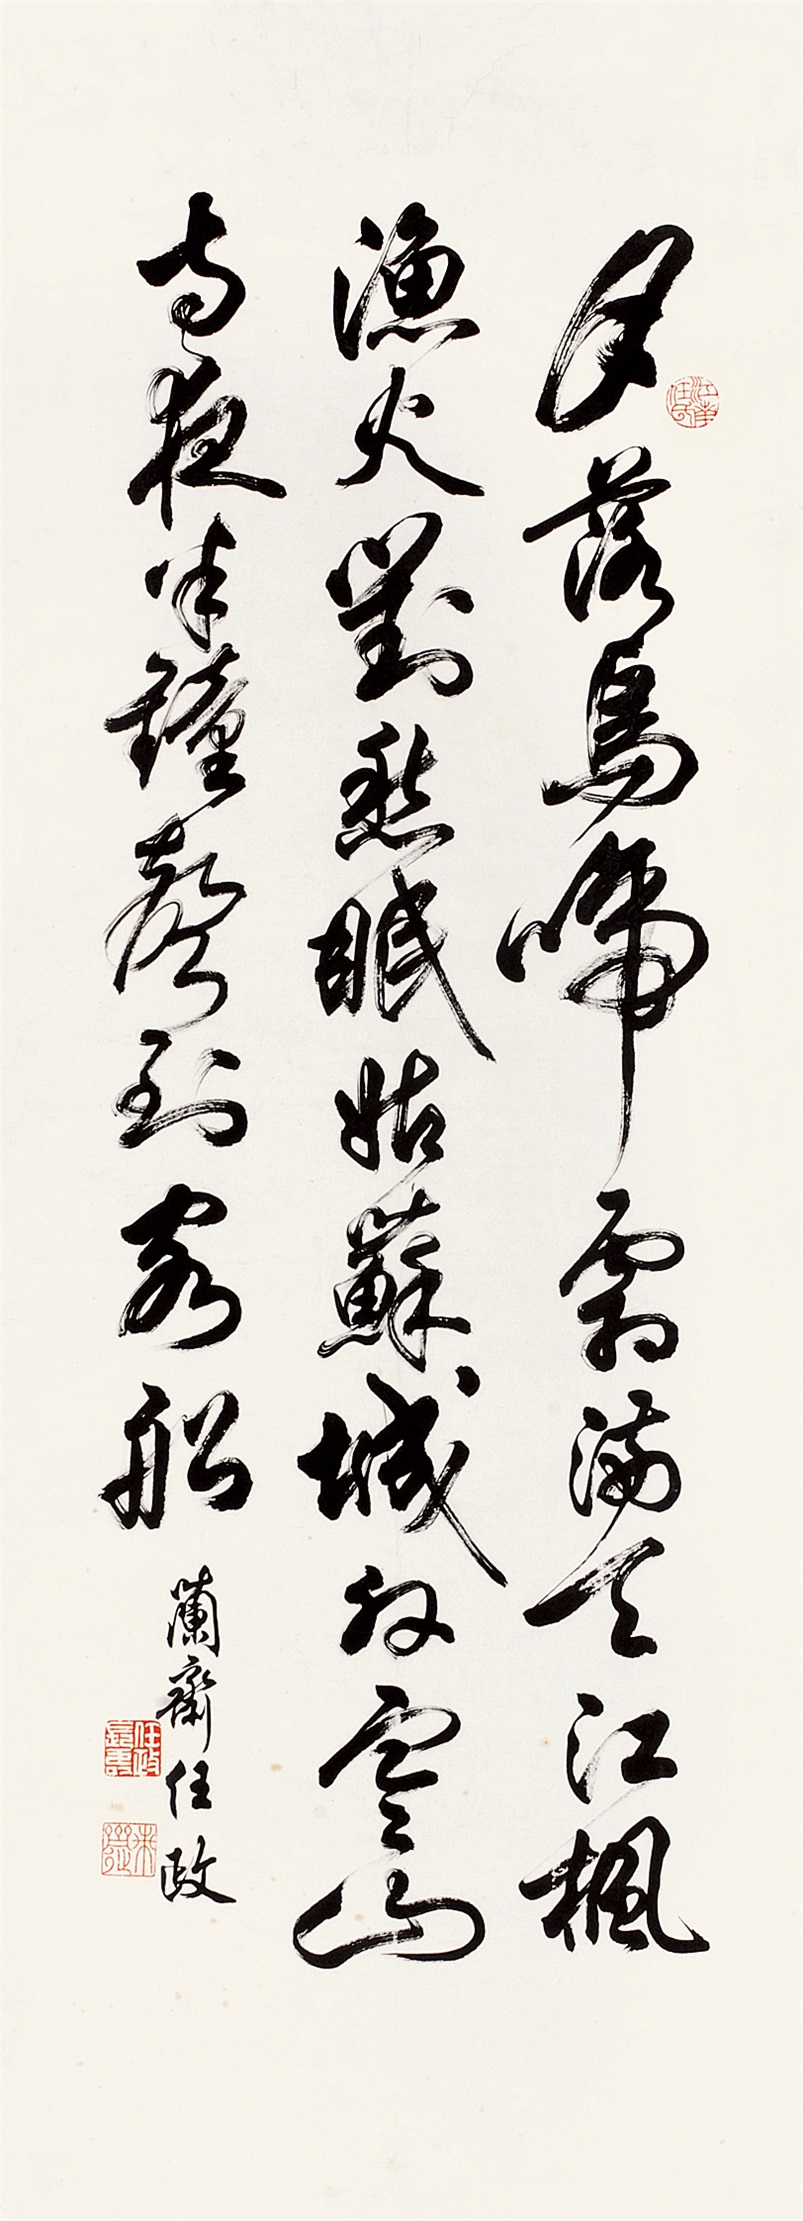 月落烏啼霜滿天江楓
漁火對愁眠姑蘇城外寒山
寺夜半鐘聲到客船
蘭齋任政